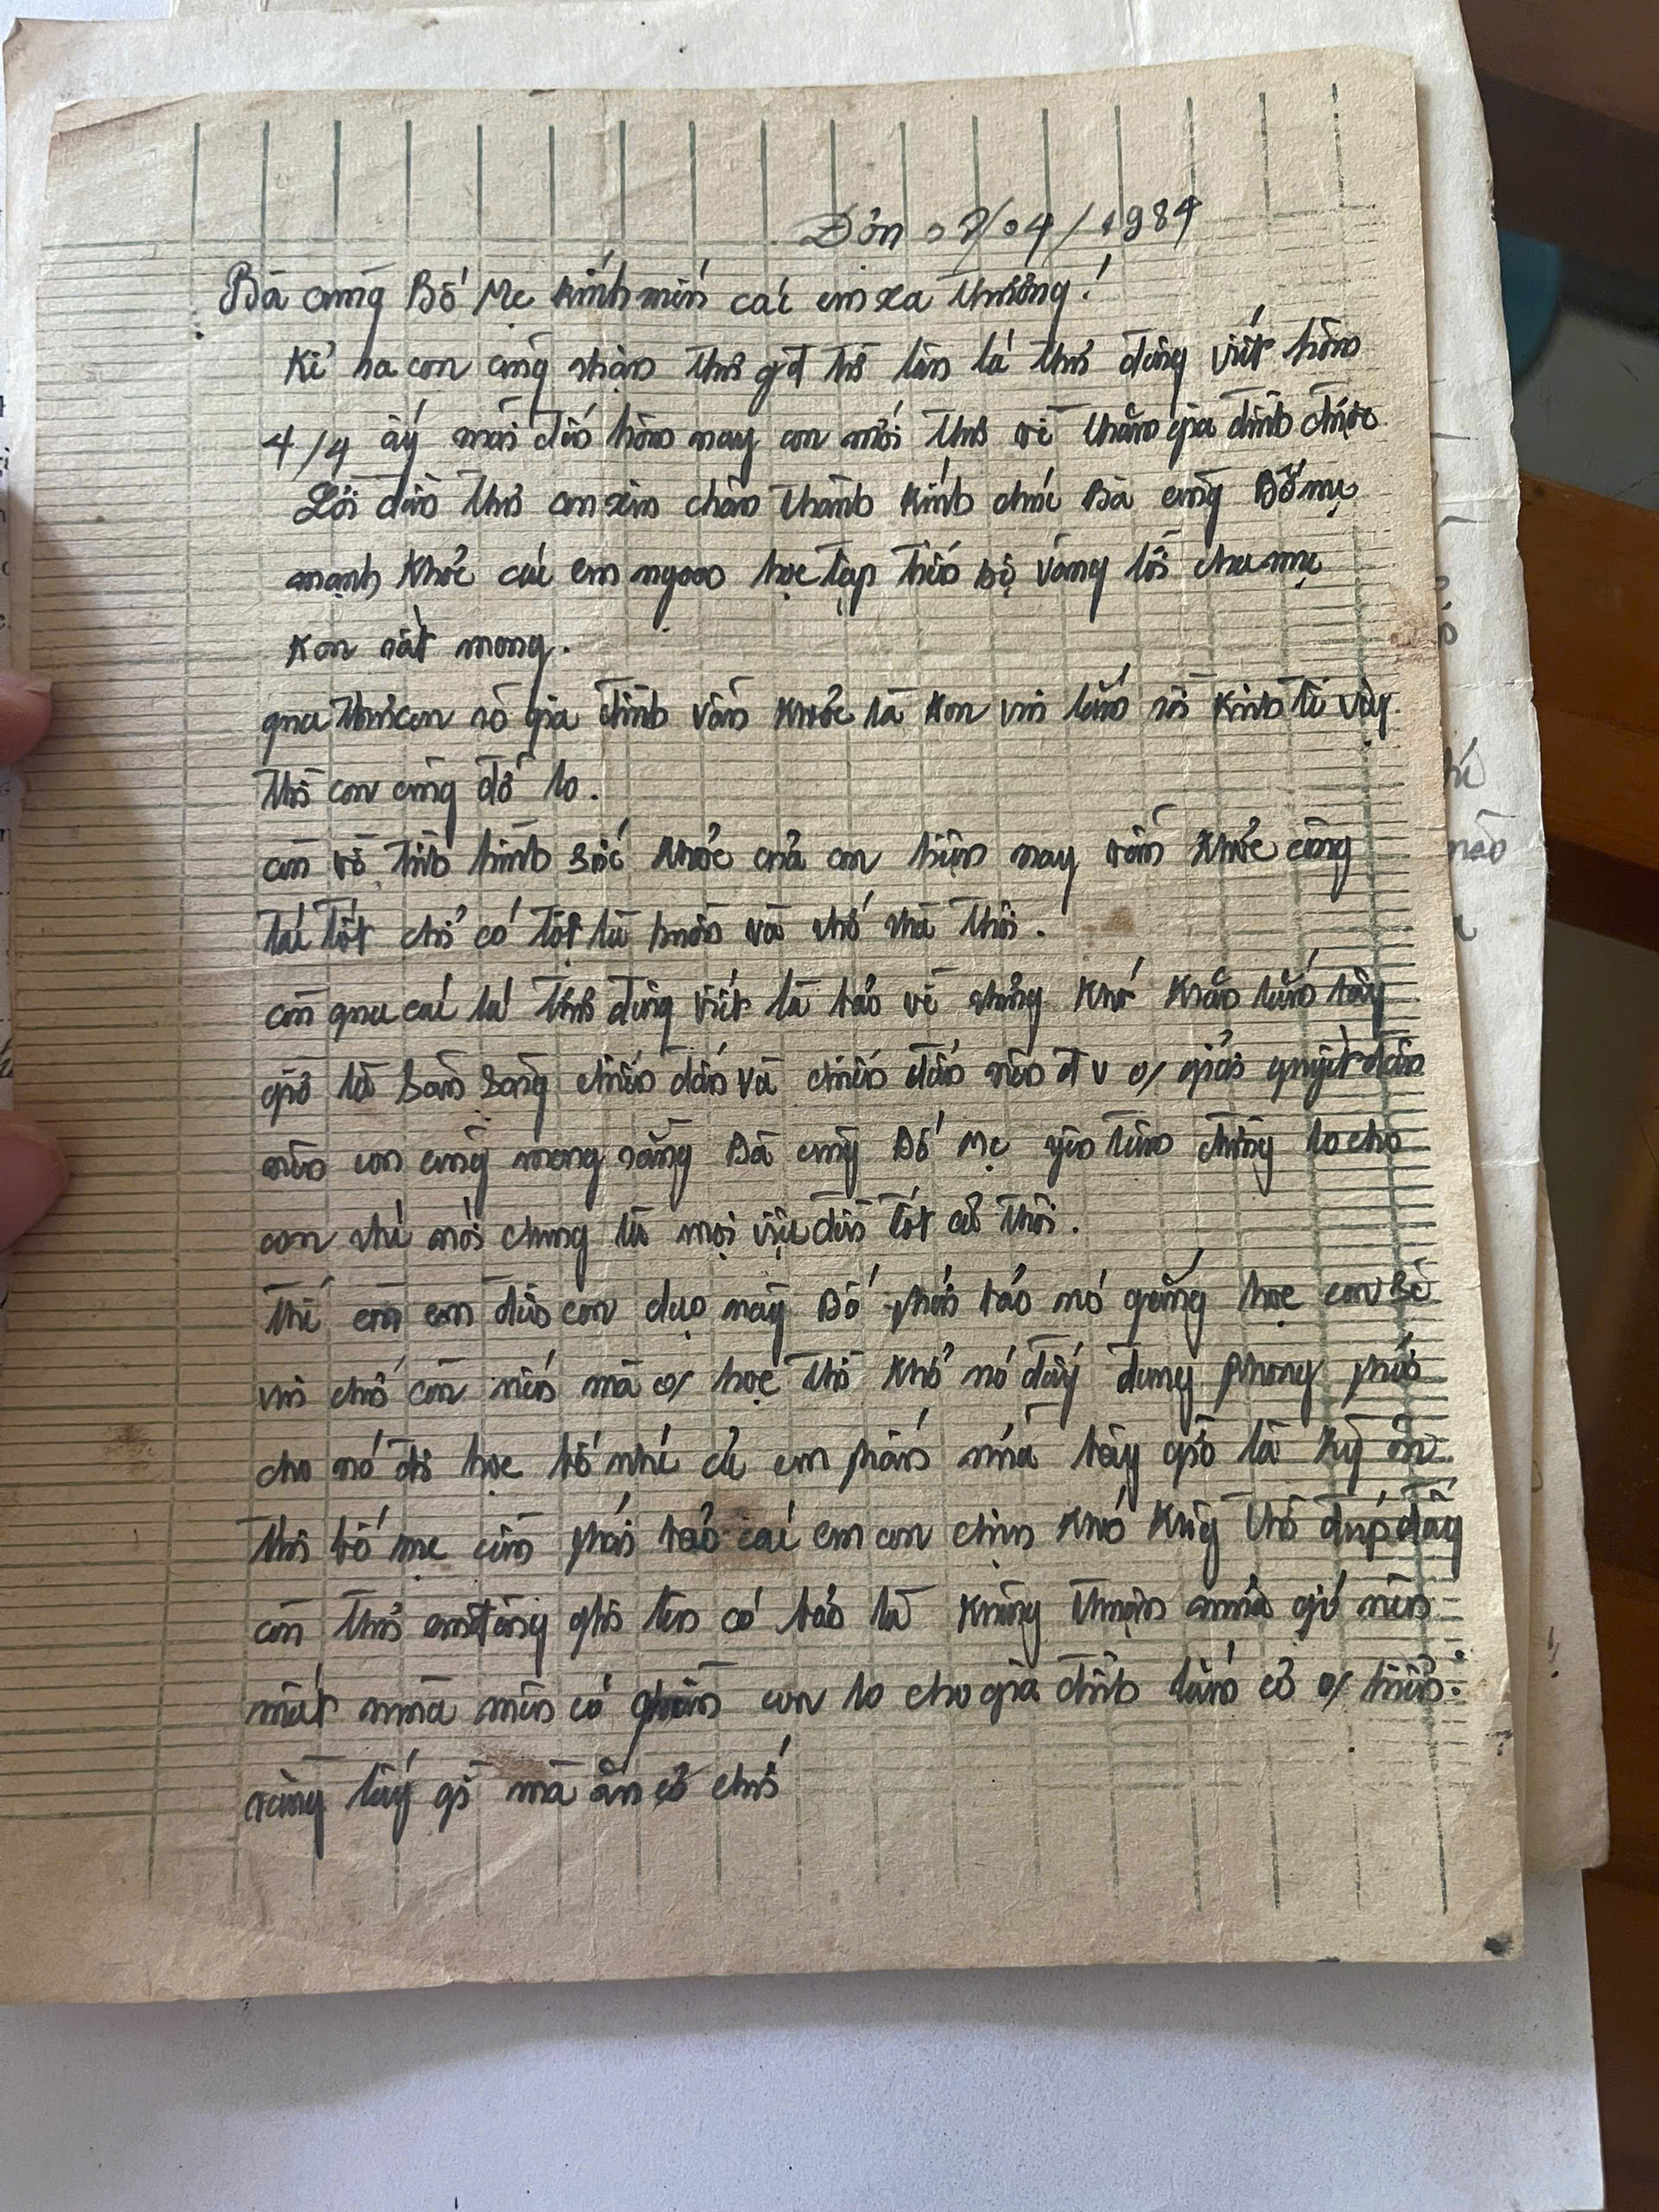 Đơn 07/04/1984
Bà cùng Bố Mẹ kính mến các em xa thương!
Kể ra con cũng nhận thư gđ thì lần lá thư dũng viết hôm
4/4 ấy mãi đến hôm nay con mới thư về thăm gia đình được
Lời đầu thư con xin chân thành kính chúc Bà cùng Bố mẹ
mạnh khoẻ các em ngoan học tập tiến bộ vâng lời cha mẹ
Kon rất mong.
qua thư con rõ gia đình vẫn khoẻ là kon vui lắm rồi kinh tế vậy
thì con cũng đỡ lo.
còn về tình hình sức khoẻ của con hiện nay vẫn khoẻ công
tác tốt chỉ có tội là buồn và nhớ nhà thôi.
còn qua cái lá thư dũng viết là bảo về những khó khăn lắm bây
giờ là sẵn sàng chiến đấu và chiến đấu nên đv o/ giải quyết đâu
nên con cũng mong rằng Bà cùng Bố Mẹ yên tâm đừng lo cho
con nhé nói chung là mọi việc đều tốt cả thôi.
Thế còn em đào con dạo này Bố phải bảo nó gắng học con Bé
vui chớ còn nếu mà o/ học thì khổ nó đấy đừng phong phải
cho nó đi học bố nhé các em phấn nữa bây giờ là kỳ ôn
thi bố mẹ cần phải bảo các em con chịu khó không thì đúp đấy
còn thư em tăng ghi lên có bảo là không thuận mưa gió nên
mất mùa nên có phần con lo cho gia đình lắm cơ o/ hiểu
rằng lấy gì mà ăn cơ chứ